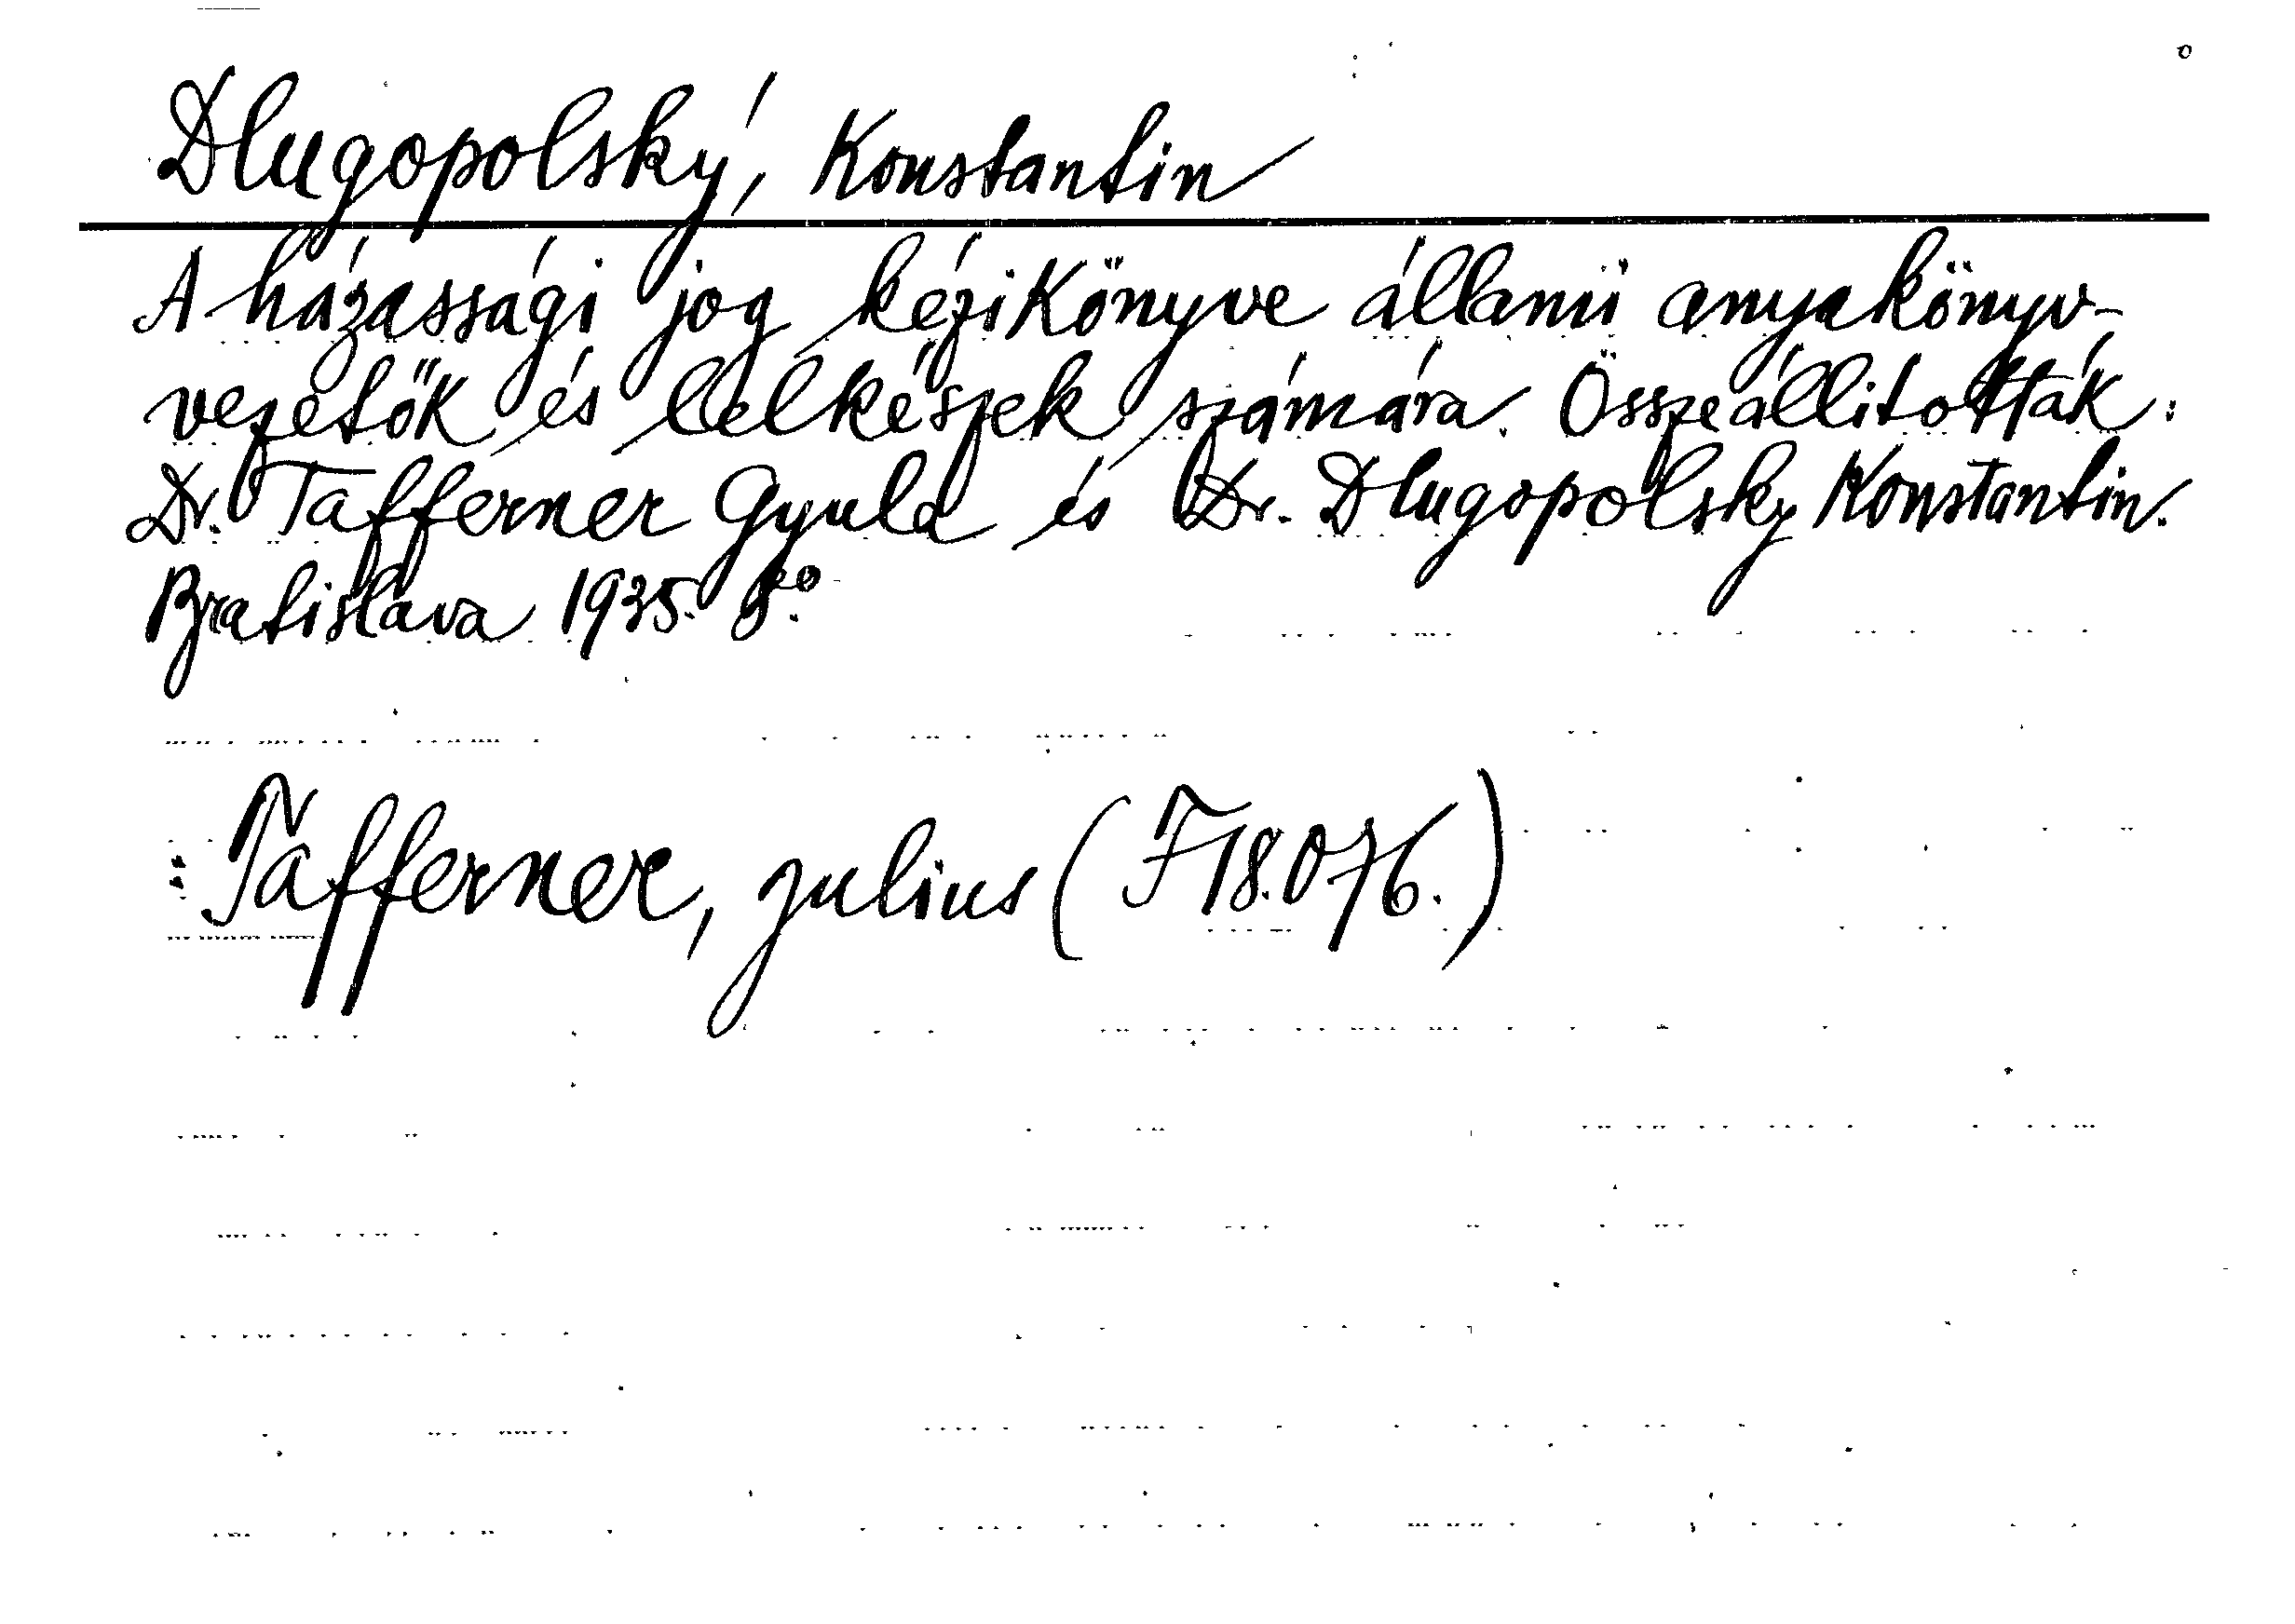 Dlugopolský, Konstantin
A házassági jog kézikönyve állami anyakönyv-
vezetők és lelkészek számára. Összeállitották:
Dr. Tafferner Gyula és Dr. Dlugopolsky Konstantin.
Bratislava 1935. 8°.
: Tafferner, Julius (F 18.076.)